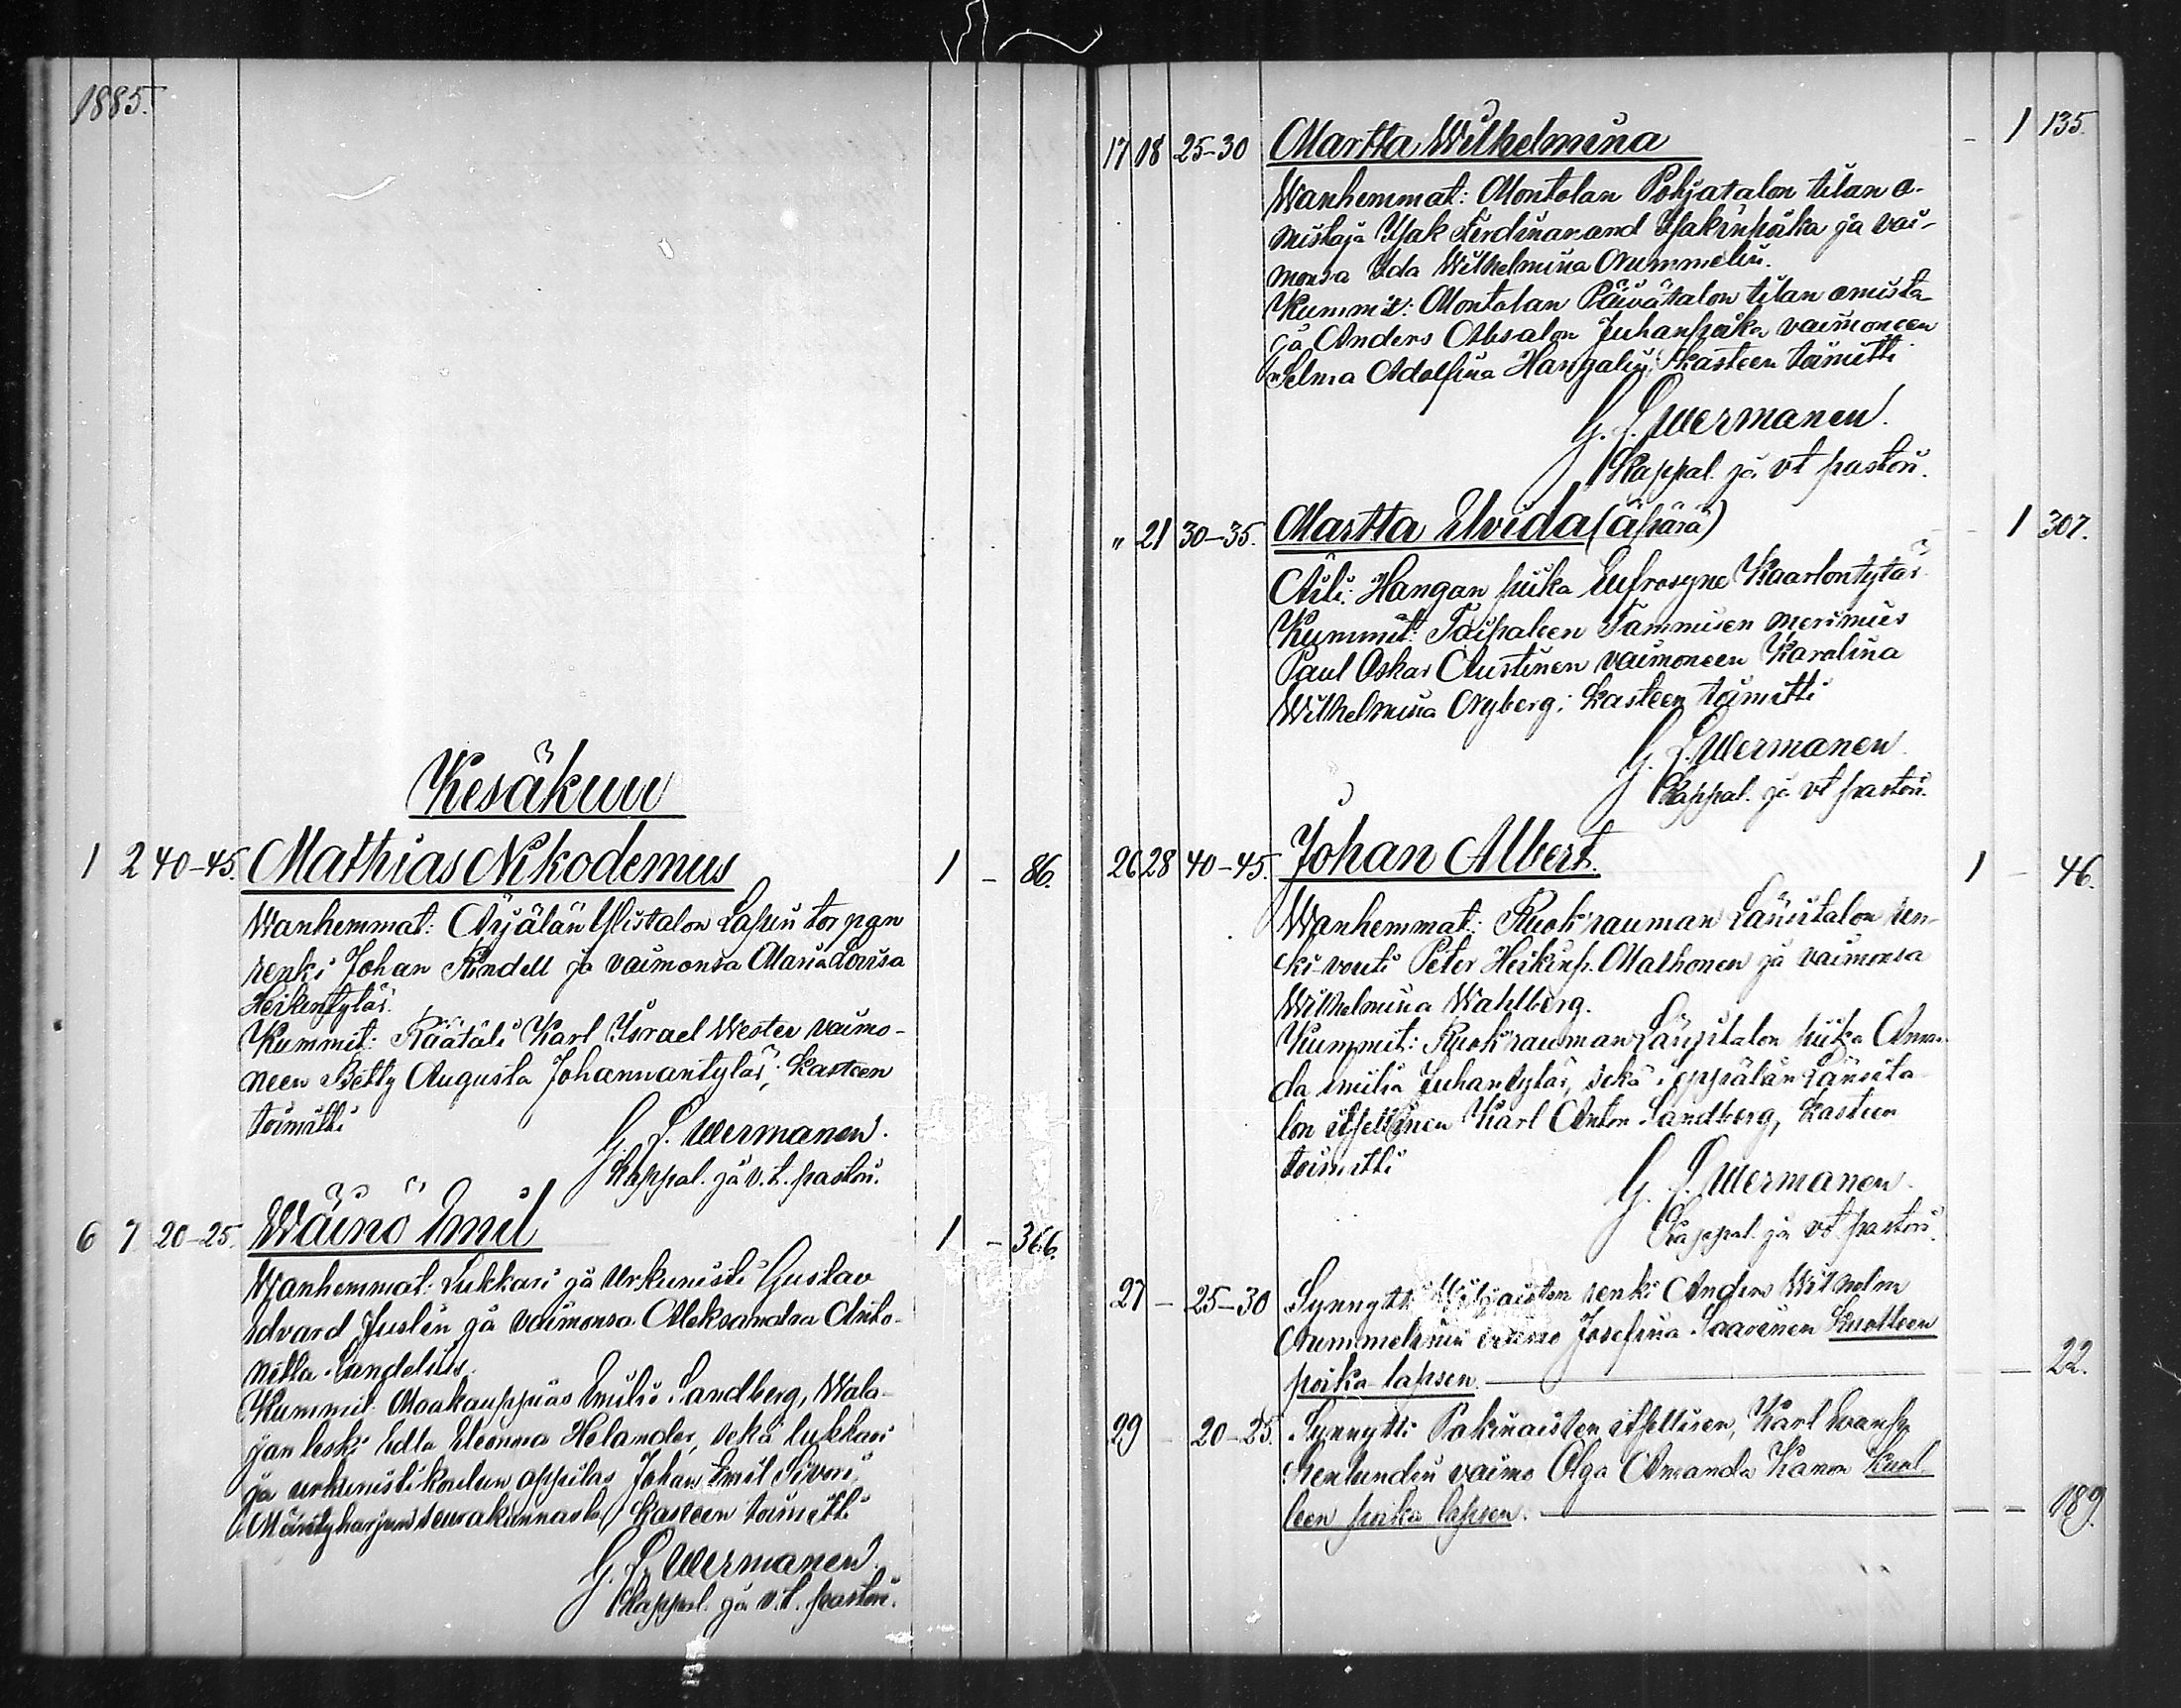 1885.
Kesäkuu
1 2 40-45. Mathias Nikodemus 1 - 86.
Wanhemmat: Äyjälän Ylistalon Lapin torpan
renki Johan Rindell ja vaimonsa Maria Lovisa
Heikintytär.
Kummit: Räätäli Karl Israel Wester vaimo-
neen Betty Augusta Johannantytär; Kasteen
toimitti
G. L. Wermanen.
Kappal. ja v.t. pastori.
6 7 20-25. Wäinö Emil 1 - 366.
Wanhemmat: Lukkari ja Urkunisti Gustav
Edvard Juslin ja vaimonsa Aleksandra Anto-
netta Sundelius.
Kummit: Maakauppias Emil Sandberg, Wala-
jan leski Edla Eleonora Helander, sekä lukkari
ja urkunistikoulun oppilas Johan Emil Sivori
Mäntyharjun seurakunnasta; Kasteen toimitti
G. L. Wermanen.
Kappal. ja v.t. pastori.
17 18 25-30 Martta Wilhelmina - 1 135.
Wanhemmat: Montolan Pohjatalon tilan o-
mistaja Isak Ferdinand Isakinpoika ja vai-
monsa Ida Wilhelmina Nummelin.
Kummit: Montolan Päivätalon tilan omista-
ja Anders Absalon Juhanpoika vaimoneen
Selma Adolfina Hangelin; Kasteen toimitti
G. L. Wermanen.
Kappal. ja vt pastori.
" 21 30-35. Martta Elvida (äpärä) - 1 307.
Äiti: Hangan piika Eufrosyne Kaarlontytär.
Kummit: Taipaleen Tammisen merimies
Paul Oskar Austinen vaimoneen Karolina
Wilhelmina Nyberg; Kasteen toimitti
G. L. Wermanen.
Kappal. ja vt pastori.
26 28 40-45. Johan Albert. 1 - 46.
Wanhemmat: Ruokrauman Länsitalon ren-
ki-vouti Peter Heikinp. Malhonen ja vaimonsa
Wilhelmina Wahlberg.
Kummit: Ruokrauman Länsitalon piika Aman-
da Emilia Juhantytär, sekä Leppälän Länsita-
lon itsellinen Karl Anton Sandberg, Kasteen
toimitti
G. L. Wermanen.
Kappal. ja vt. pastori.
27 - 25-30 Synnytti renki Anders Wilhelm
Nummelinin vaimo Josefina Saarinen Kuolleen
poika lapsen. - - 22.
29 - 20-25. Synnytti Pakinaisten itsellisen, Karl Evanp.
Renlundin vaimo Olga Amanda Kanon Kuol-
leen poika lapsen. - - 189.